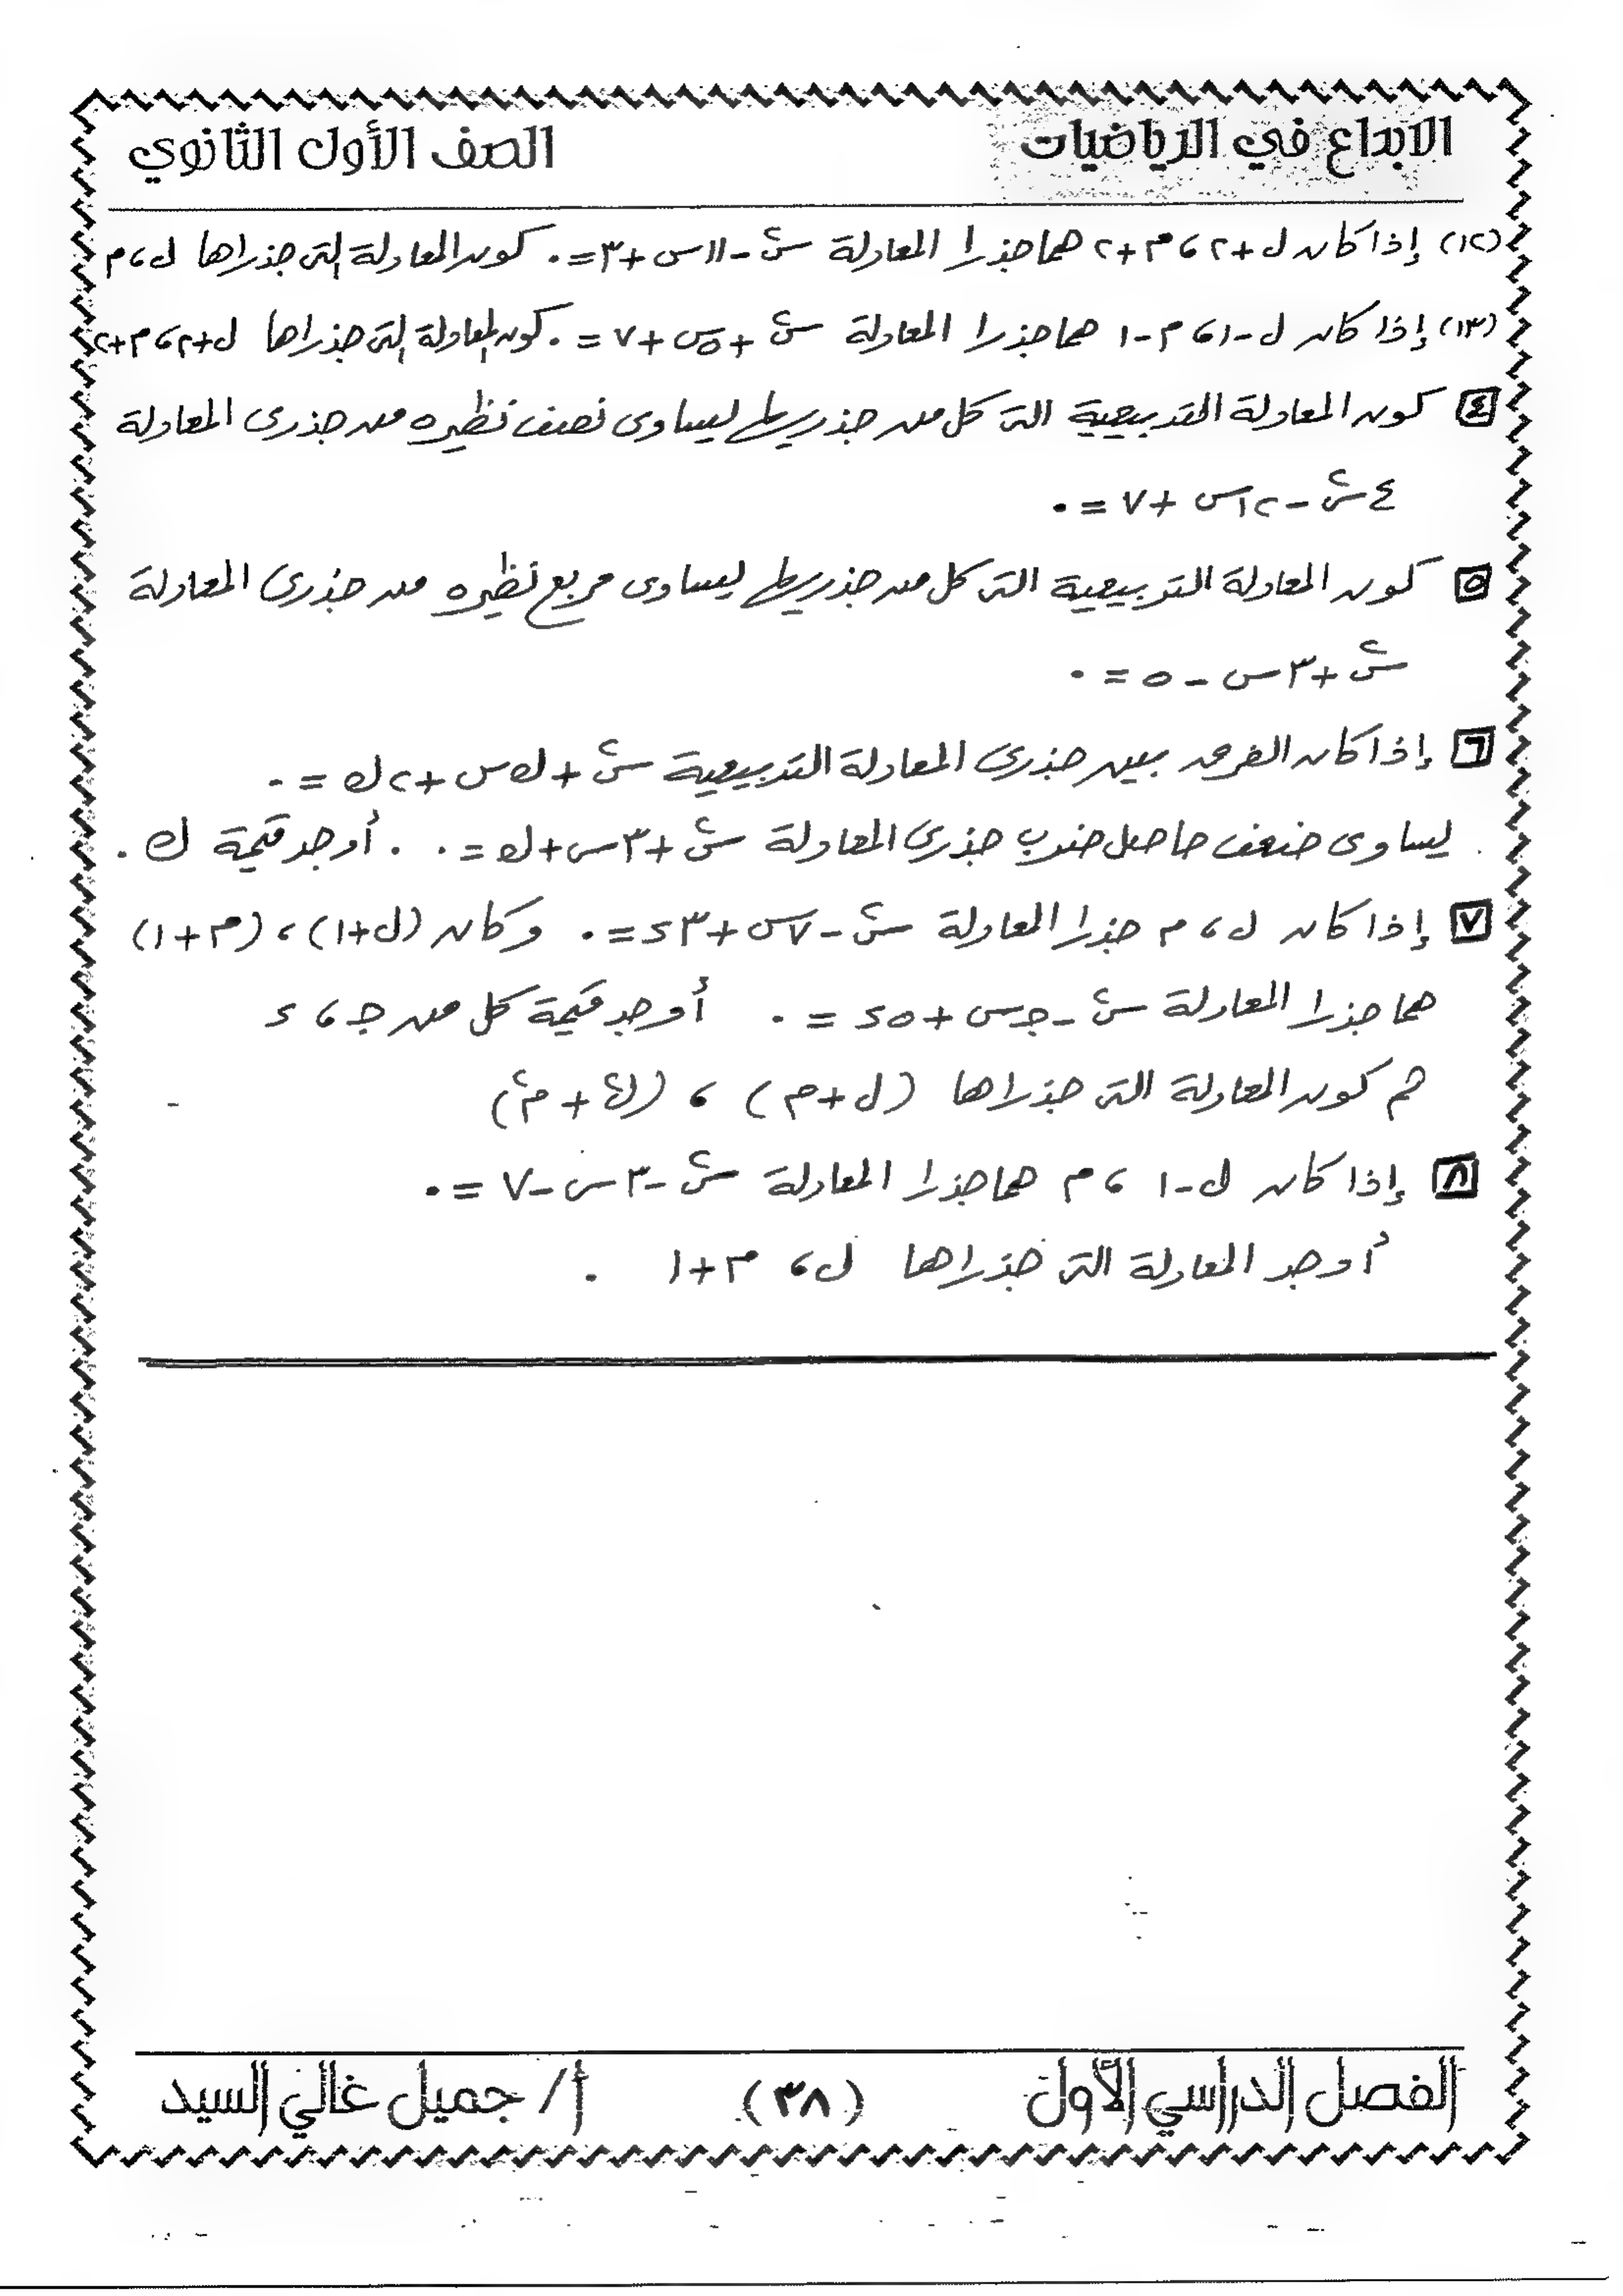 الابداع في الرياضيات
الصف الأول الثانوي
(١٢) إذا كان ل+٢ ، م+٢ هما جذرا المعادلة س٢-١١س+٣=٠ كون المعادلة التى جذراها ل ، م
(١٣) إذا كان ل-١ ، م-١ هما جذرا المعادلة س٢+٥س+٧=٠ كون المعادلة التى جذراها ل+٢ ، م+٢
٤ كون المعادلة التربيعية التى كل من جذريها يساوى نصف نظيره من جذرى المعادلة
٤س٢-١٢س+٧=٠
٥ كون المعادلة التربيعية التى كل من جذريها يساوى مربع نظيره من جذرى المعادلة
س٢+٣س-٥=٠
٦ إذا كان الفرق بين جذرى المعادلة التربيعية س٢+ك س+٢ك=٠
يساوى ضعف حاصل ضرب جذرى المعادلة س٢+٣س+ك=٠ . أوجد قيمة ك .
٧ إذا كان ل ، م جذرا المعادلة س٢-٧س+٣د=٠ وكان (ل+١) ، (م+١)
هما جذرا المعادلة س٢-جـ س+٥د=٠ أوجد قيمة كل من جـ ، د
ثم كون المعادلة التى جذراها (ل+م) ، (ل٢+م٢)
٨ إذا كان ل-١ ، م هما جذرا المعادلة س٢-٣س-٧=٠
أوجد المعادلة التى جذراها ل ، م+١ .
الفصل الدراسي الأول
(٣٨)
أ/ جميل غالي السيد